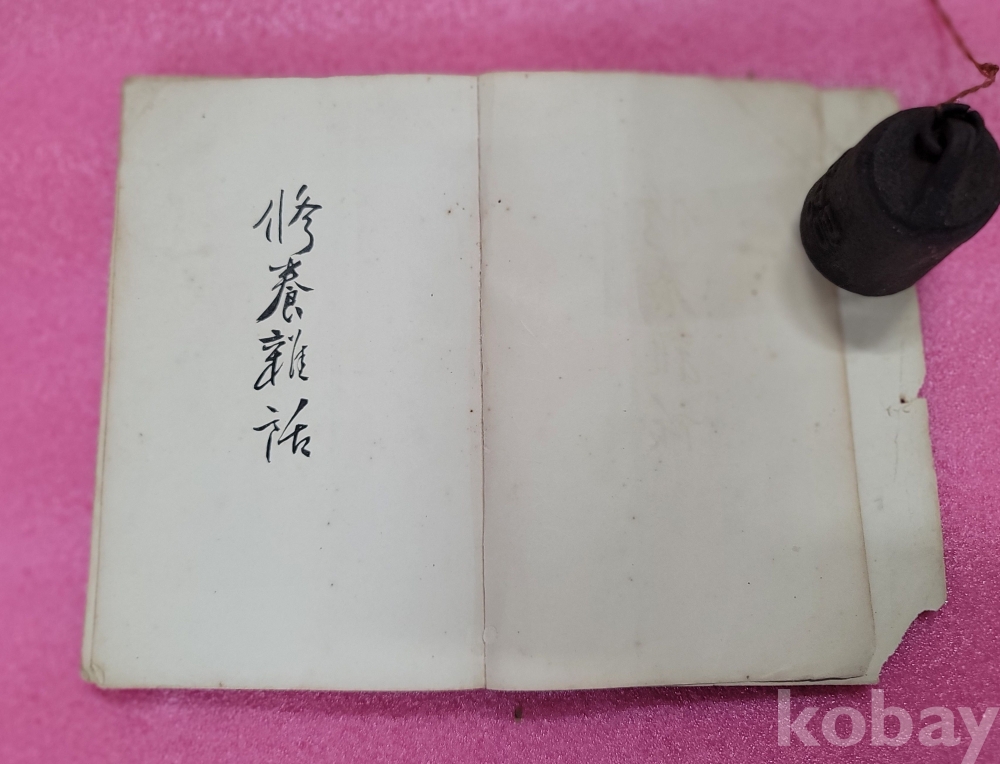 修養雜話
kobay